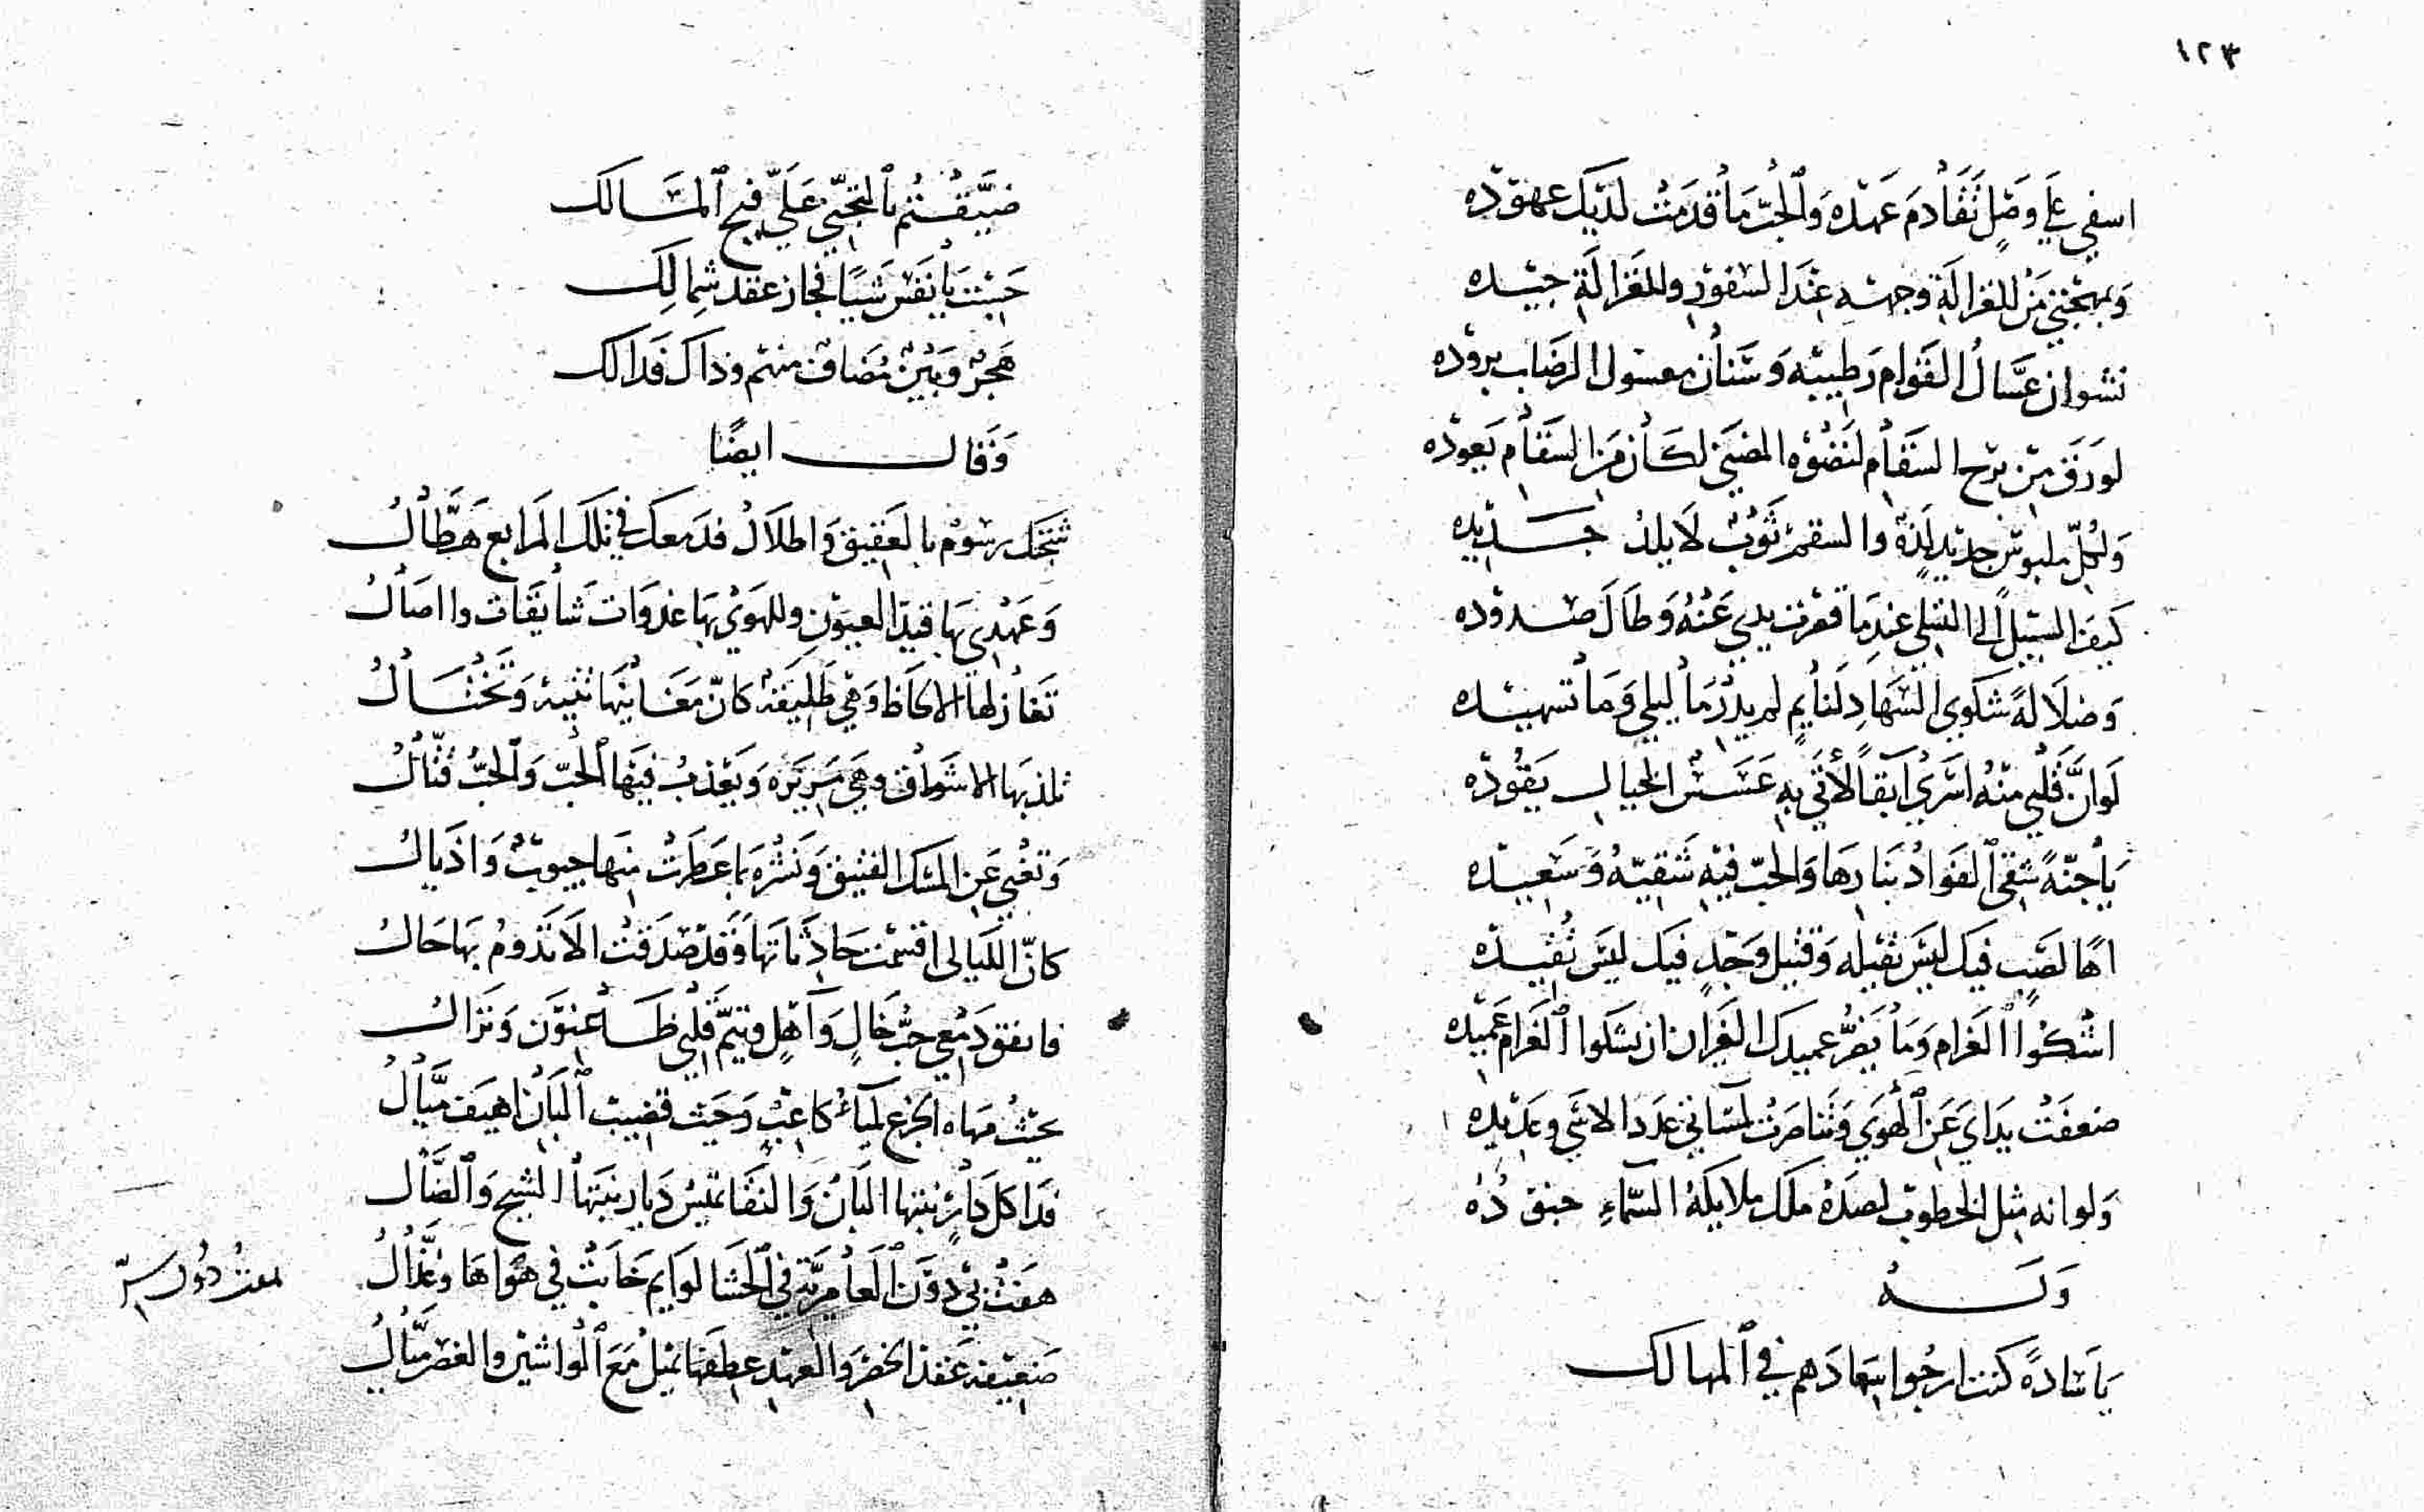 ١٢٣
اسفي على وصل تقادم عهده والحب ما قدمت لديك عهوده
وبمهجتي من للغزالة وجهه عند السفور وللغزالة جيده
نشوان عسال القوام رطيبه وسنان معسول الرضاب بروده
لو رق من برح السقام لنضوه المضنى لكان من السقام يعوده
ولكل ملبوس جديد لذة والسقم ثوب لا يلذ جديده
كيف السبيل الى التسلي عندما قصرت يدي عنه وطال صدوده
وضلالة شكوى السهاد لنايم لم يدر ما ليلي وما تسهيده
لو ان قلبي منه اسرى آبقا لأتى به عسس الخيال يقوده
يا جنة شقي الفؤاد بنارها والحب فيه شقيه وسعيده
اها لصب فيك ليس تقيله وقتيل وجد فيك ليس تقيده
اشكوا الغرام وما يغر عميدك الغران ان يشكوا الغرام عميده
ضعفت يداي عن الهوى وتناصرت لمساتي عدد الاسى وعديده
ولو انه مثل الخطوب لصده ملك ملايكة السماء جنوده
وله
يا سادة كنت ارجوا اسعادهم في المهالك
ضيقتم بالتجني علي فيح المسالك
جيت يا نفس شيا فجاز عقد شمالك
هجر وبين مضاف منهم وذاك فذالك
وقال ايضا
شجتك رسوم بالعقيق واطلال فدمعك في تلك المرابع هطال
وعهدي بها قيد العيون وللهوى بها غدوات شايقات واصال
تغازلها الالحاظ وهي طليقة كان مغانيها تتيه وتختال
تلذ بها الاشواق وهي مريرة ويعذب فيها الحب والحب قتال
وتغني عن المسك الفتيق ونشره بما عطرت منها جيوب واذيال
كان الليالي اقسمت حادثاتها وقد صدقت الا تدوم بها حال
فانفق دمعي حب خال وآهل وتيم قلبي ظاعنون ونزال
بحيث مهاه الجزع لمياء كاعب وحيث قضيب البان اهيف ميال
فدا كل دار نبتها البان والنقا تميس ديار نبتها الشيح والضال
هفت بي دون العامرية في الحشا لوايم خابت في هواها وعذال
ضعيفة عقد الخصر والعهد عطفها يميل مع الواشين والغصن ميال